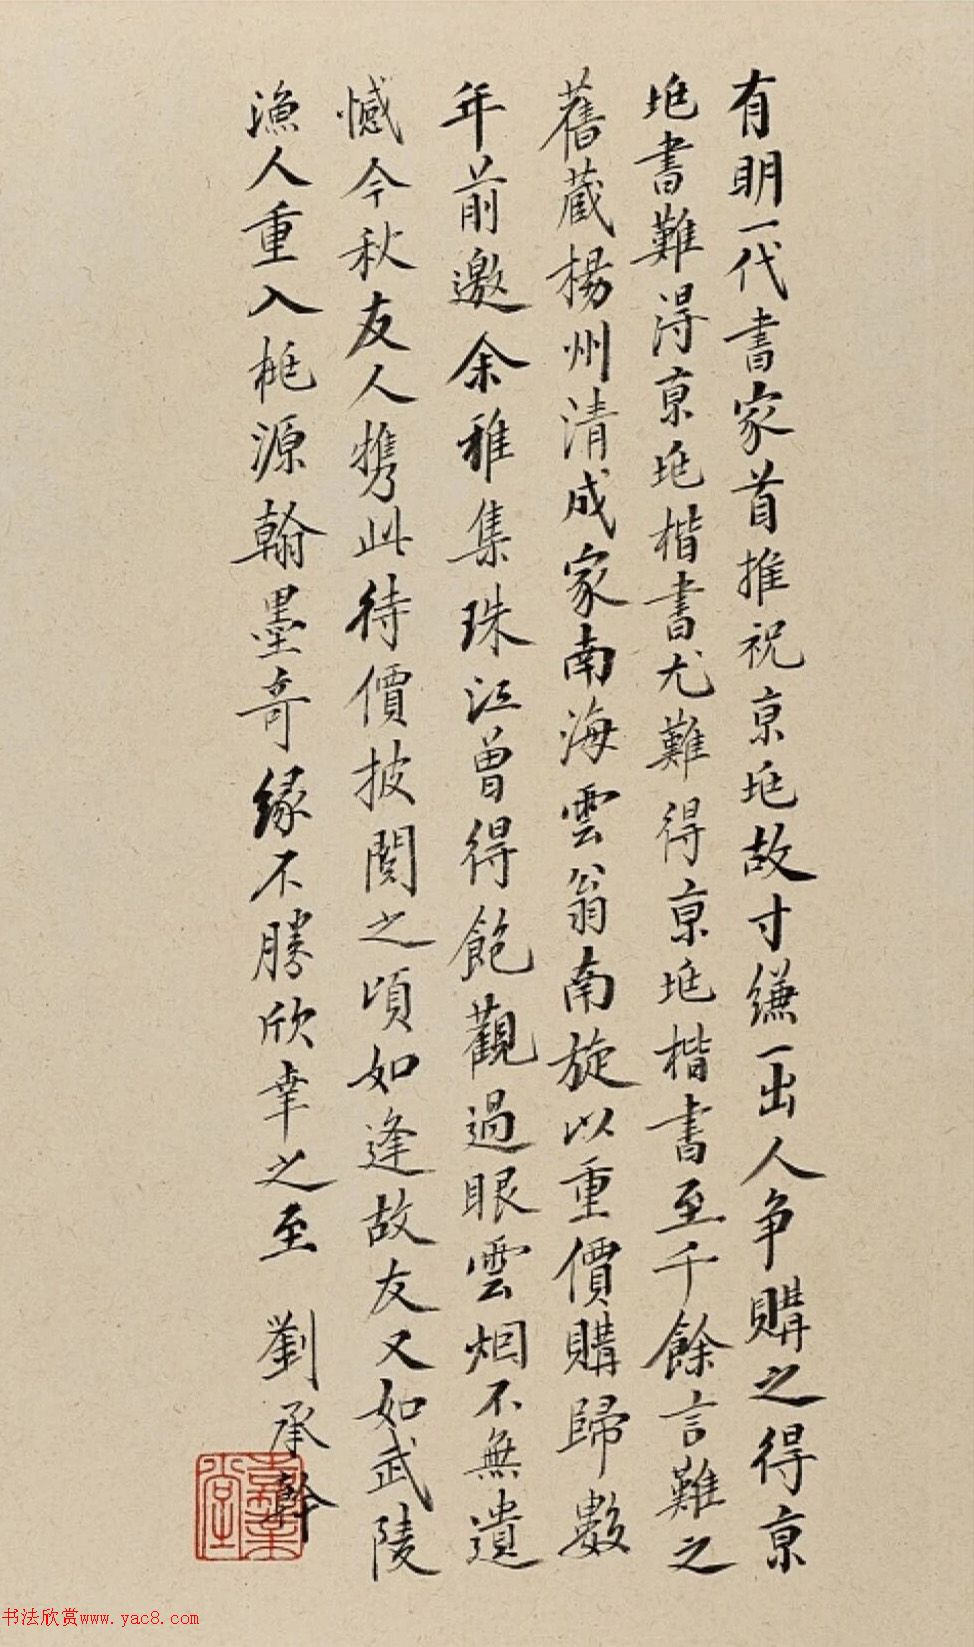 有明一代書家首推祝京兆故寸縑一出人争購之得京
兆書難得京兆楷書尤難得京兆楷書至千餘言難之
舊蔵楊州清成家南海雲翁南旋以重價購歸數
年前邀余雅集珠江曾得飽觀過眼雲烟不無遺
憾今秋友人携此待價披閱之頃如逢故友又如武陵
漁人重入桃源翰墨奇緣不勝欣幸之至 劉承幹
嘉業堂
书法欣赏www.yac8.com